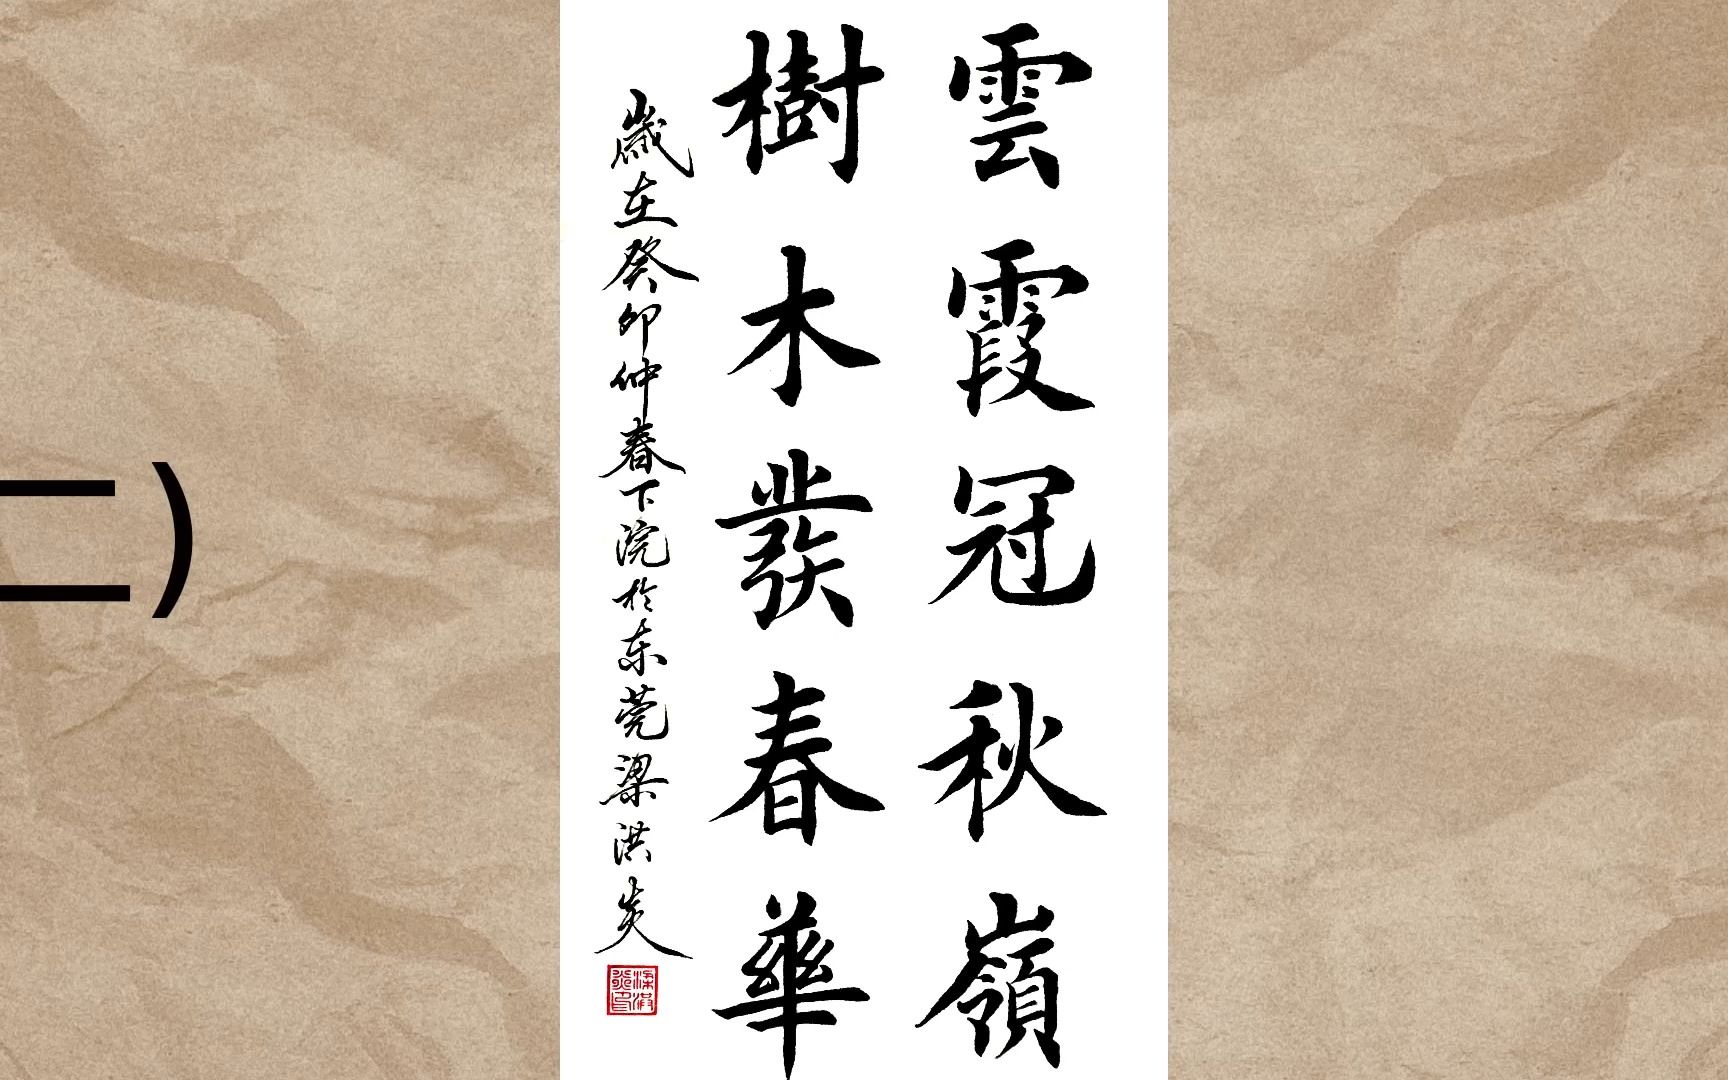 雲霞冠秋嶺
樹木發春華
歲在癸卯仲春下浣於东莞梁洪炎
梁洪炎印
二）